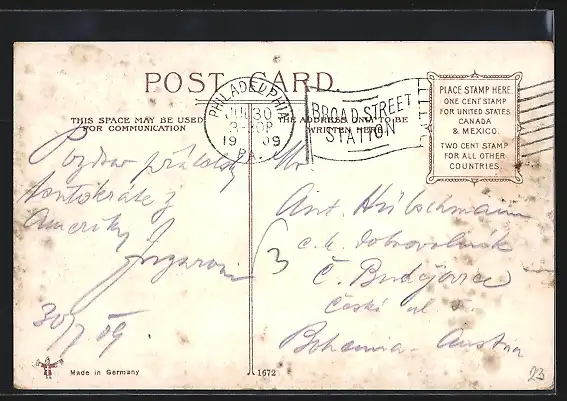 POST CARD.
THIS SPACE MAY BE USED
FOR COMMUNICATION
THE ADDRESS ONLY TO BE
WRITTEN HERE
PHILADELPHIA
JUL 30
3-30P
1909
PA.
BROAD STREET
STATION
PLACE STAMP HERE.
ONE CENT STAMP
FOR UNITED STATES
CANADA
& MEXICO.
TWO CENT STAMP
FOR ALL OTHER
COUNTRIES.
Pozdrav přátelský
tentokráte z
Ameriky
30/7 09.
Mr
Ant. Hübschmann
c. k. dobrovolník
Č. Budějovice
Česká ul.
Bohemia - Austria
3
Made in Germany
1672
23